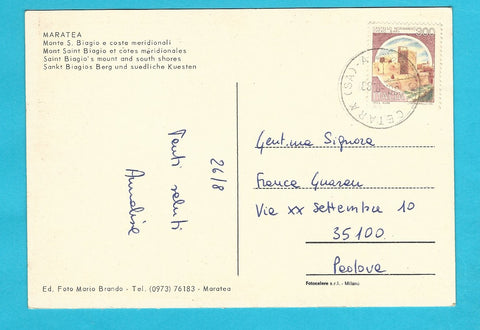 MARATEA
Monte S. Biagio e coste meridionali
Mont Saint Biagio et côtes méridionales
Saint Biagio's mount and south shores
Sankt Biagios Berg und suedliche Kuesten
26/8
Tanti saluti
Annalisa
Ed. Foto Mario Brando - Tel. (0973) 76183 - Maratea
300
CETARA (SA)
Gent.ma Signora
Franca
Via XX Settembre 10
35100
Padova
Fotocelere s.r.l. - Milano